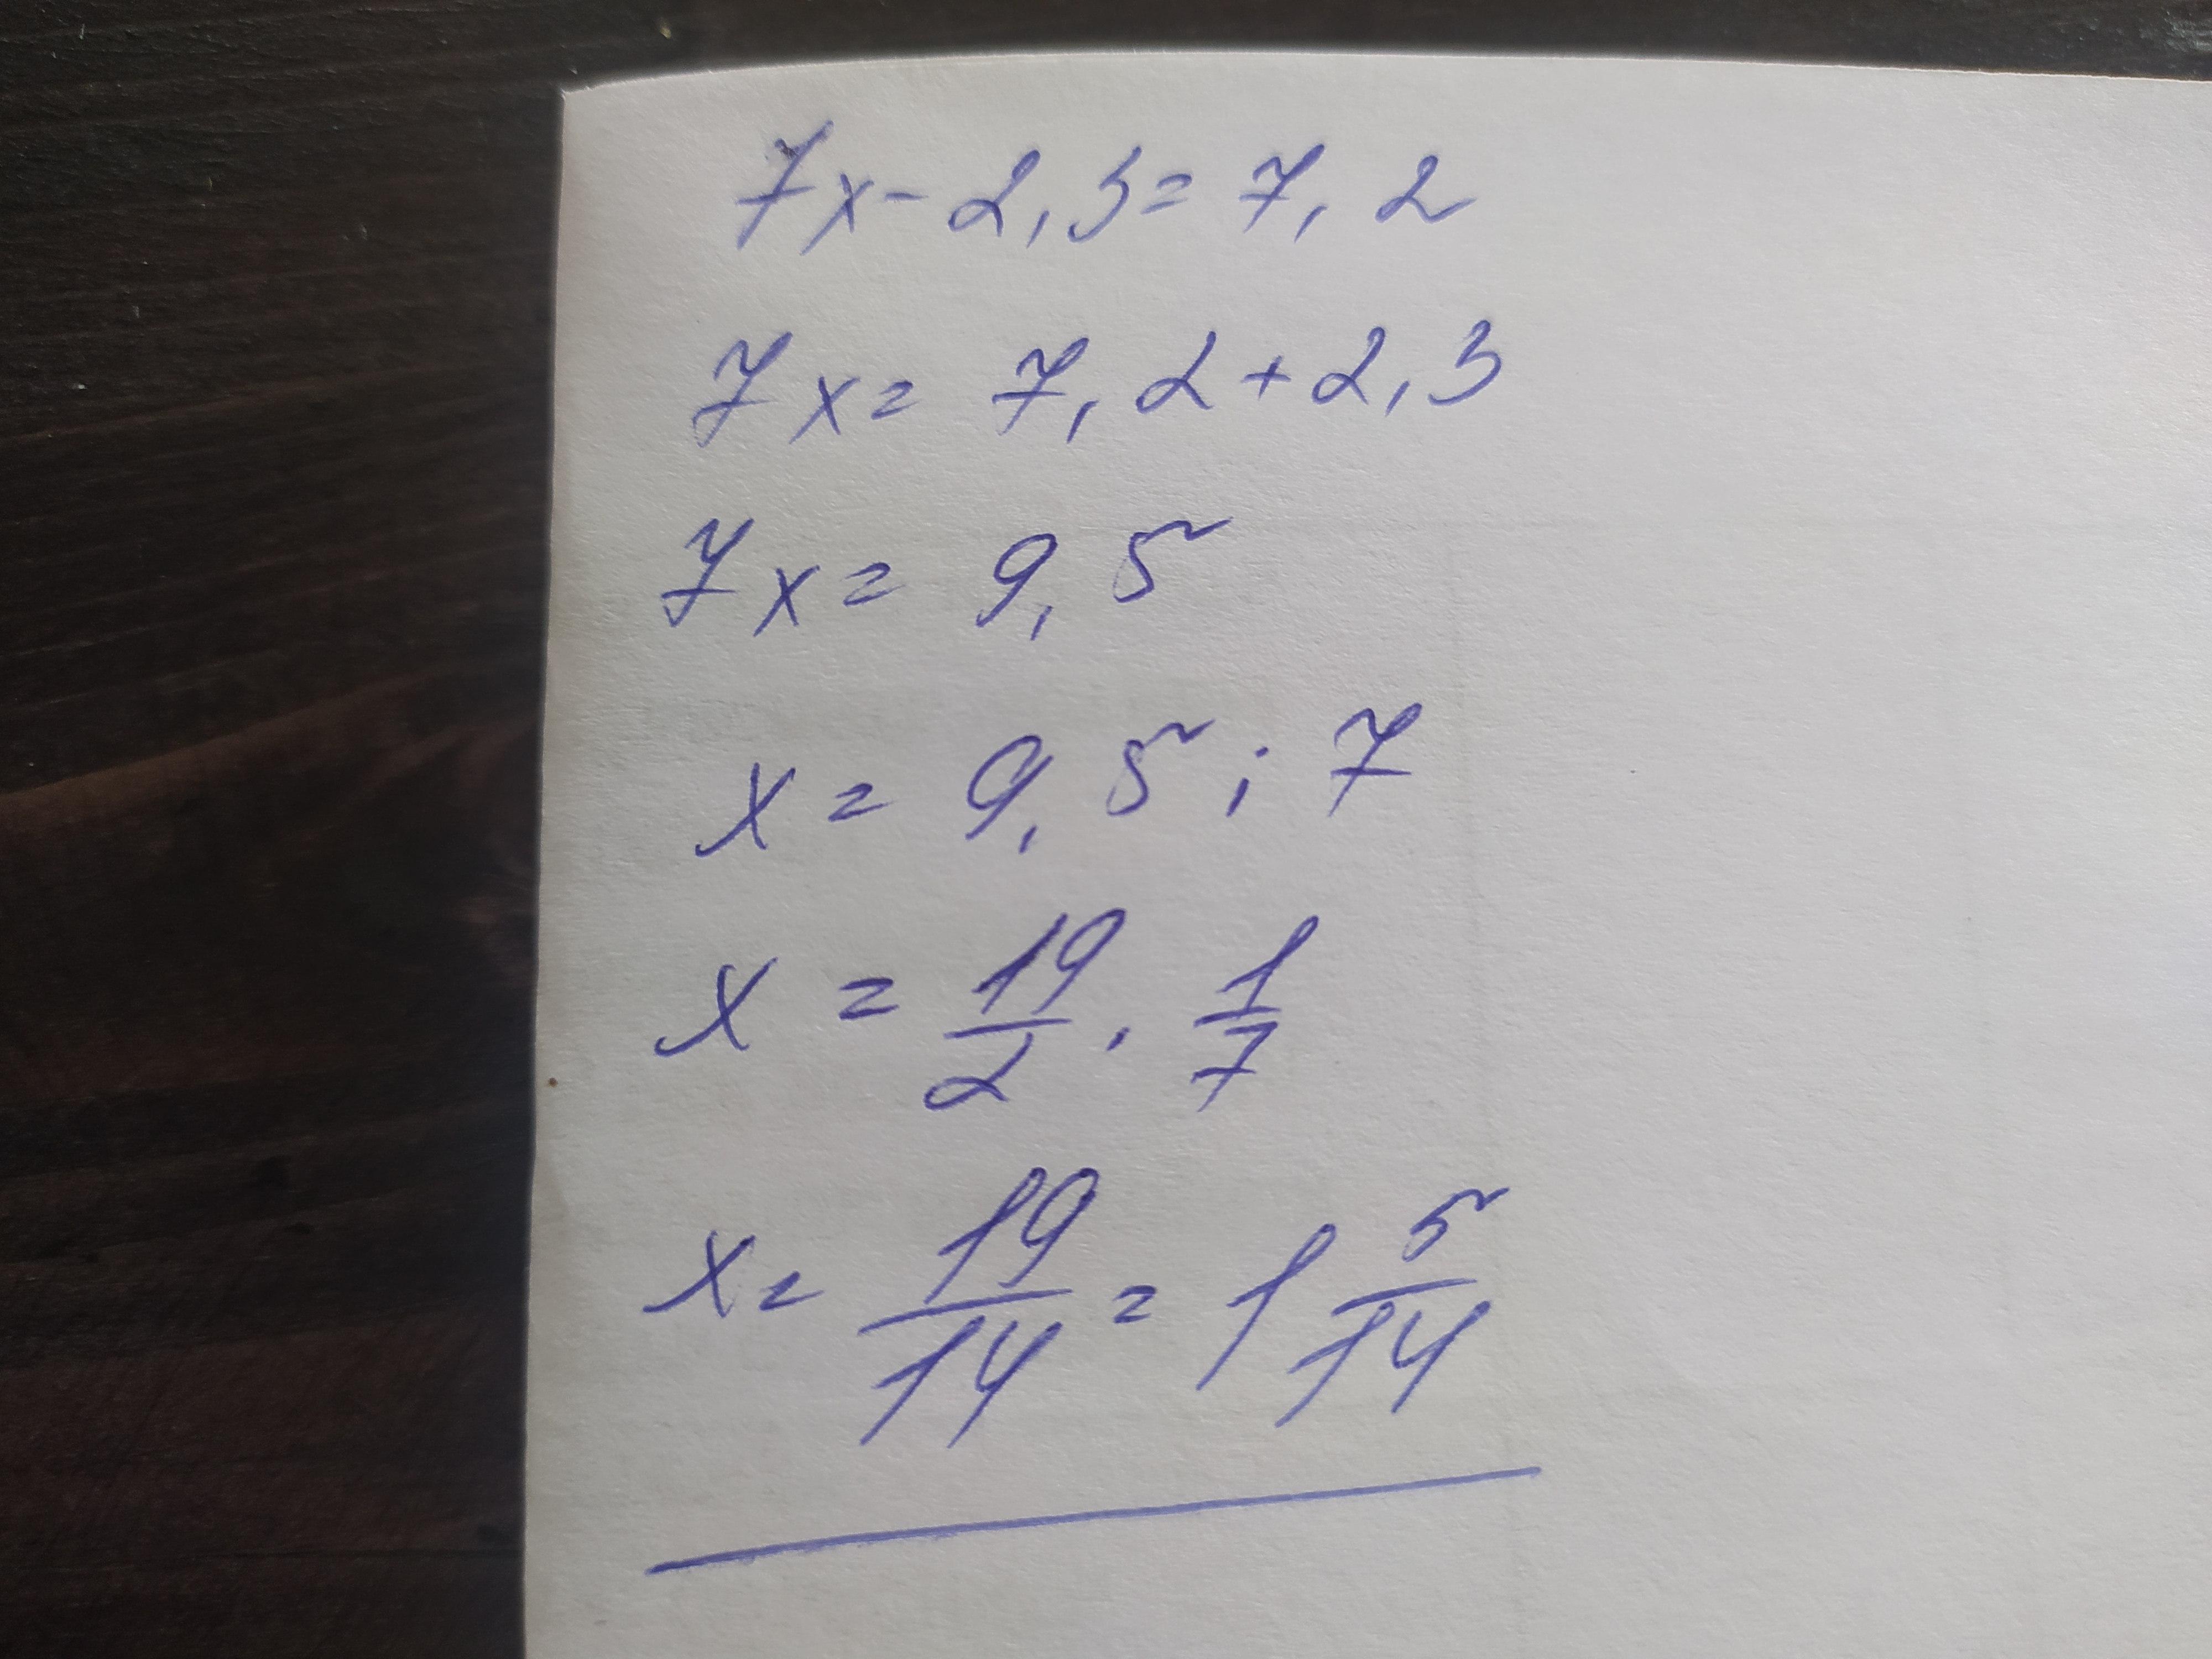 7x - 2,3 = 7,2
7x = 7,2 + 2,3
7x = 9,5
x = 9,5 : 7
x = 19/2 · 1/7
x = 19/14 = 1 5/14